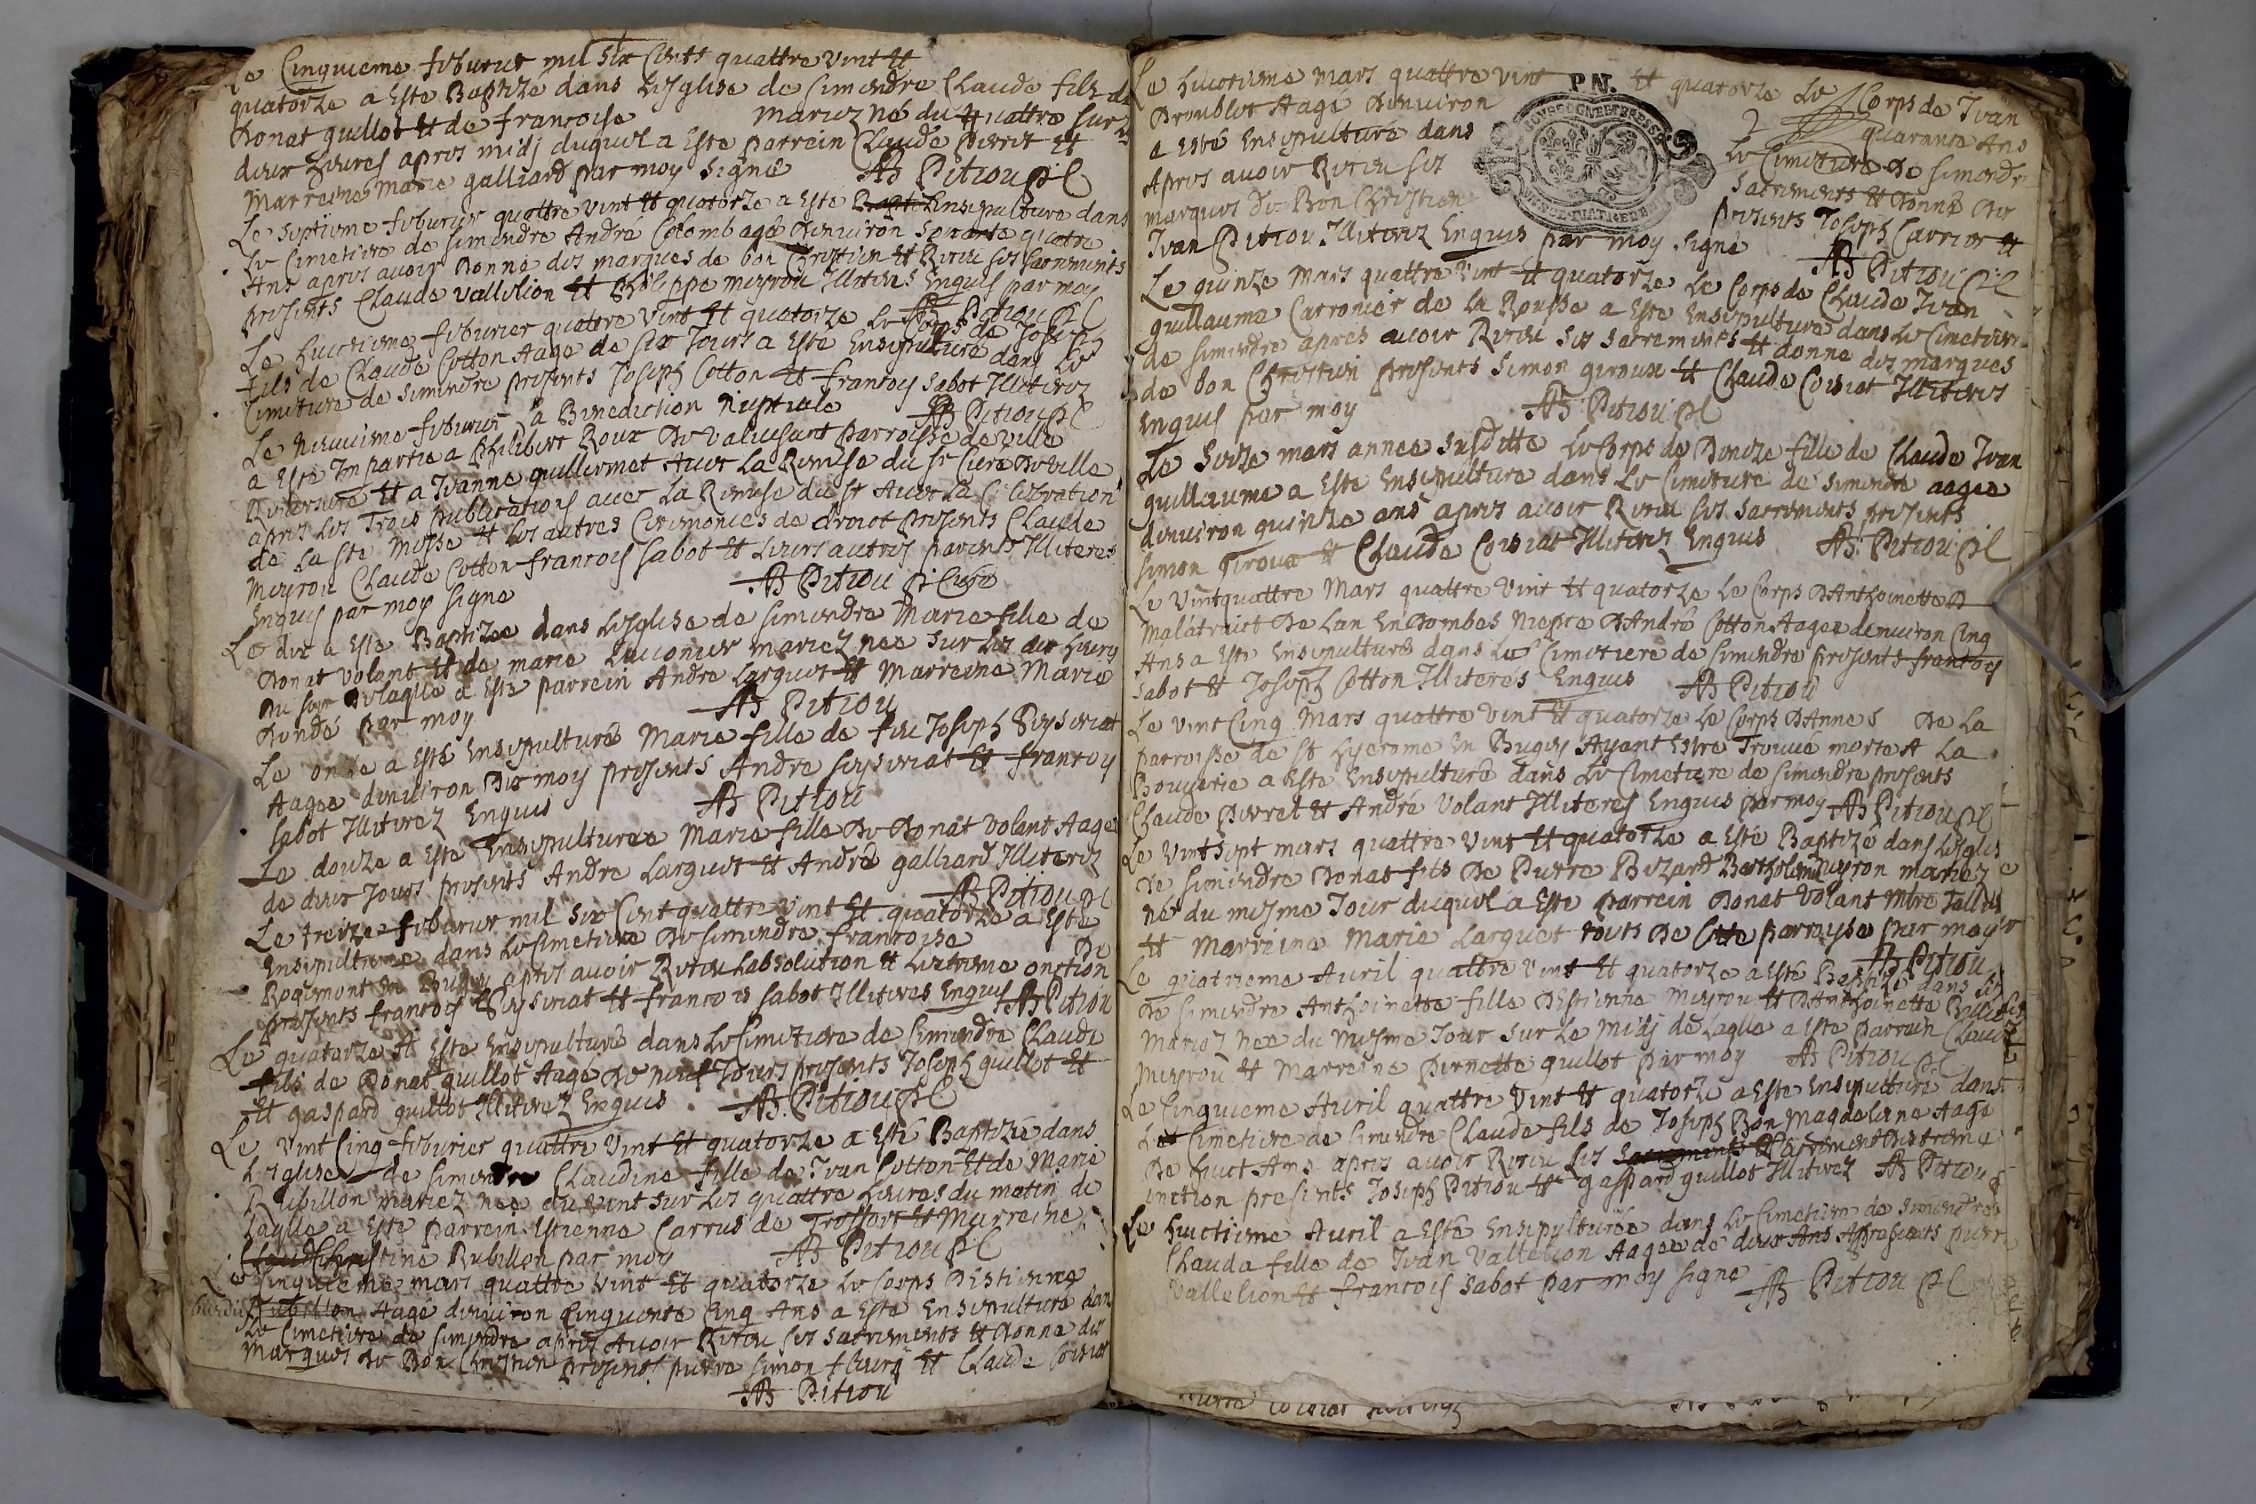 Le Cinquieme feburier mil six Cents quattre vint et
quatorze a Este Baptizé dans Lesglise de simendre Claude fils de
Donat guillot et de francoise mariez né du quattre sur
deux heures apres midj duquel a Este parrein Claude perret et
Marreine Marie galliard par moy signé AB Pitiou pl
Le septieme feburier quattre vint et quatorze a Este Ensepulture dans
Le Cimetiere de simendre André Colomb agé Denuiron quatre
Ans apres auoir Donné des marques de bon Chrestien et Receu ses sacrements
presents Claude vallelion et Philippe meyrou Illiteres Enquis par moy
AB Pitiou pl
Le huictieme feburier quattre vint et quatorze Le Corps de Joseph
fils de Claude Cotton Aage de six Jours a Este Ensepulture dans Le
Cimetiere de simendre presents Joseph Cotton et francois sabot Illiterez
AB Pitiou pl
Le neuuieme feburier la Benediction nuptiale
a Este Impartie a Philibert Roux De valeusant parroisse de ville
Reuersure et a Jeanne guillermet Auec La Remise du sr Cure De ville
apres Les Trois publications auec La Remise du sr Auec La Celebration
de La ste Messe et Les autres Ceremonies de droict presents Claude
Meyrou Claude Cotton francois sabot et Leurs autres parents Illiteres
Enquis par moy signé AB Pitiou pl Curé
Le dix a Este Baptizee dans Lesglise de simendre Marie fille de
Donat volant et de marie mariez nee sur Les dix heures
Du soir De laqlle a Este parrein Andre Larguet et Marreine Marie
Dondé par moy AB Pitiou
Le onze a Esté Ensepulturé Marie fille de feu Joseph Seysuriat
Aagee denuiron Dix moys presents Andre seysuriat et francoy
sabot Illiterez Enquis AB Pitiou
Le douze a Este Ensepulturee Marie fille De Donat volant Aage
de deux Jours presents Andre Larguet et André galliard Illiterez
AB Pitiou pl
Le treize feburier mil six Cent quattre vint et quatorze a Este
Ensepulturee dans Le Cimetiere De simendre francoise De
Rogemont en Bugey apres auoir Receu Labsolution et Lextreme onction
presents francois Seysuriat et francois sabot Illiteres Enquis AB Pitiou
Le quatorze A Este Ensepulturé dans Le Cimetiere de Simendre Claude
fils de Donat guillot Aagé De neuf Jours presents Joseph guillot et
et gaspard guillot Illiterez Enquis AB Pitiou pl
Le vint Cinq feburier quattre vint et quatorze a Esté Baptizée dans
Lesglise de simendre Claudine fille de Jean Cotton et de Marie
Rubillon mariez nee du vint sur Les quattre heures du matin de
Laqlle a Este parrein Estienne Carrus de Treffort et Marreine
Christine Rubillon par moy AB Pitiou pl
Le Cinquieme mars quattre vint et quatorze Le Corps DEstienne
Rubillon Aagé denuiron Cinquante Cinq Ans a Este Ensepulturé dans
Le Cimetiere de simendre apres Auoir Receu ses sacrements et Donné des
Marques De Bon Chrestien presents pierre simon fleury et Claude Coiriat
AB Pitiou
Le huictieme mars quattre vint et quatorze Le Corps de Jean
Droublot Aagé Denuiron quarante Ans
a esté Ensepulturé dans Le Cimetiere De simendre
Apres auoir Receu ses sacrements et Donné Des
marques De Bon Chrestien presents Joseph Carrier et
Jean Pitiou Illiterez Enquis par moy signé AB Pitiou pl
P.N.
Le quinze Mars quattre vint et quatorze Le Corps de Claude Jean
guillaume Carronier de La Rousse a Este Ensepulture dans Le Cimetiere
de simendre apres auoir Receu ses sacrements et donne des marques
de bon Chrestien presents Simon giroux et Claude Coiriat Illiteres
Enquis par moy AB Pitiou pl
Le seize mars annee susditte Le Corps de Denoize fille de Claude Jean
guillaume a Este Ensepulture dans Le Cimetiere de simendre aagee
denuiron quinze ans apres auoir Receu ses sacrements presents
simon giroux et Claude Coiriat Illiterez Enquis AB Pitiou pl
Le vintquattre Mars quattre vint et quatorze Le Corps DAnthoinette D
Malatraict De Lan En Dombes niepce DAndré Cotton Aagee denuiron Cinq
Ans a Este Ensepulturé dans Le Cimetiere de simendre presents francois
sabot et Joseph Cotton Illiterés Enquis AB Pitiou
Le vint Cinq Mars quattre vint et quatorze Le Corps DAnnes De La
parroisse de st hyerome En Bugey Ayant Estre Trouué morte A La
Bouuerie a Este Ensepulturé dans Le Cimetiere de simendre presents
Claude Perret et André volant Illiteres Enquis par moy AB Pitiou pl
Le vint sept mars quattre vint et quatorze a Esté Baptizé dans Lesglise
de simendre Donat fils De Pierre Bizard Bartholemie meyron mariez
né du mesme Jour duquel a Este parrein Donat volant mtre Tallieur
et Marreine Marie Larguet touts De Cette parroysse par moy
AB Pitiou
Le quatrieme Auril quattre vint et quatorze a Esté Baptizé dans
De simendre Anthoinette fille DEstienne Meyrou et DAnthoinette
Mariez nee du Mesme Jour sur Le Midj de Laqlle a Este parrein Claude
meyrou et Marreine pernette guillot par moy AB Pitiou pl
Le Cinquieme Auril quattre vint et quatorze a Este Ensepulturé dans
Le Cimetiere de simendre Claude fils de Joseph Bon Magdelaine Aagé
De huict Ans apres auoir Receu Les
onction presents Joseph Pitiou et gaspard guillot Illiterez AB Pitiou
Le huictieme Auril a Esté Ensepulturée dans Le Cimetiere de simendre
Clauda fille de Jean vallelion Aagee de deux Ans presents pierre
vallelion et francois sabot par moy signe AB Pitiou pl